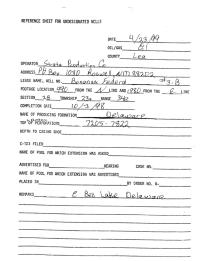 REFERENCE SHEET FOR UNDESIGNATED WELLS
DATE 4/23/99
OIL/GAS Oil
COUNTY Lea
OPERATOR Santa Production Co
ADDRESS PO Box 1030 Roswell, NM 88202
LEASE NAME, WELL NO. Bonanza Federal #3-B
FOOTAGE LOCATION 990 FROM THE N LINE AND 1980 FROM THE E LINE
SECTION 28 TOWNSHIP 23s RANGE 34e
COMPLETION DATE 10/3/98
NAME OF PRODUCING FORMATION Delaware
TOP OF PERFORATIONS 7205-7322
DEPTH TO CASING SHOE
C-123 FILED
NAME OF POOL FOR WHICH EXTENSION WAS ASKED
ADVERTISED FOR HEARING CASE NO.
NAME OF POOL FOR WHICH EXTENSION WAS ADVERTISED
PLACED IN BY ORDER NO. R-
REMARKS Lake Delaware